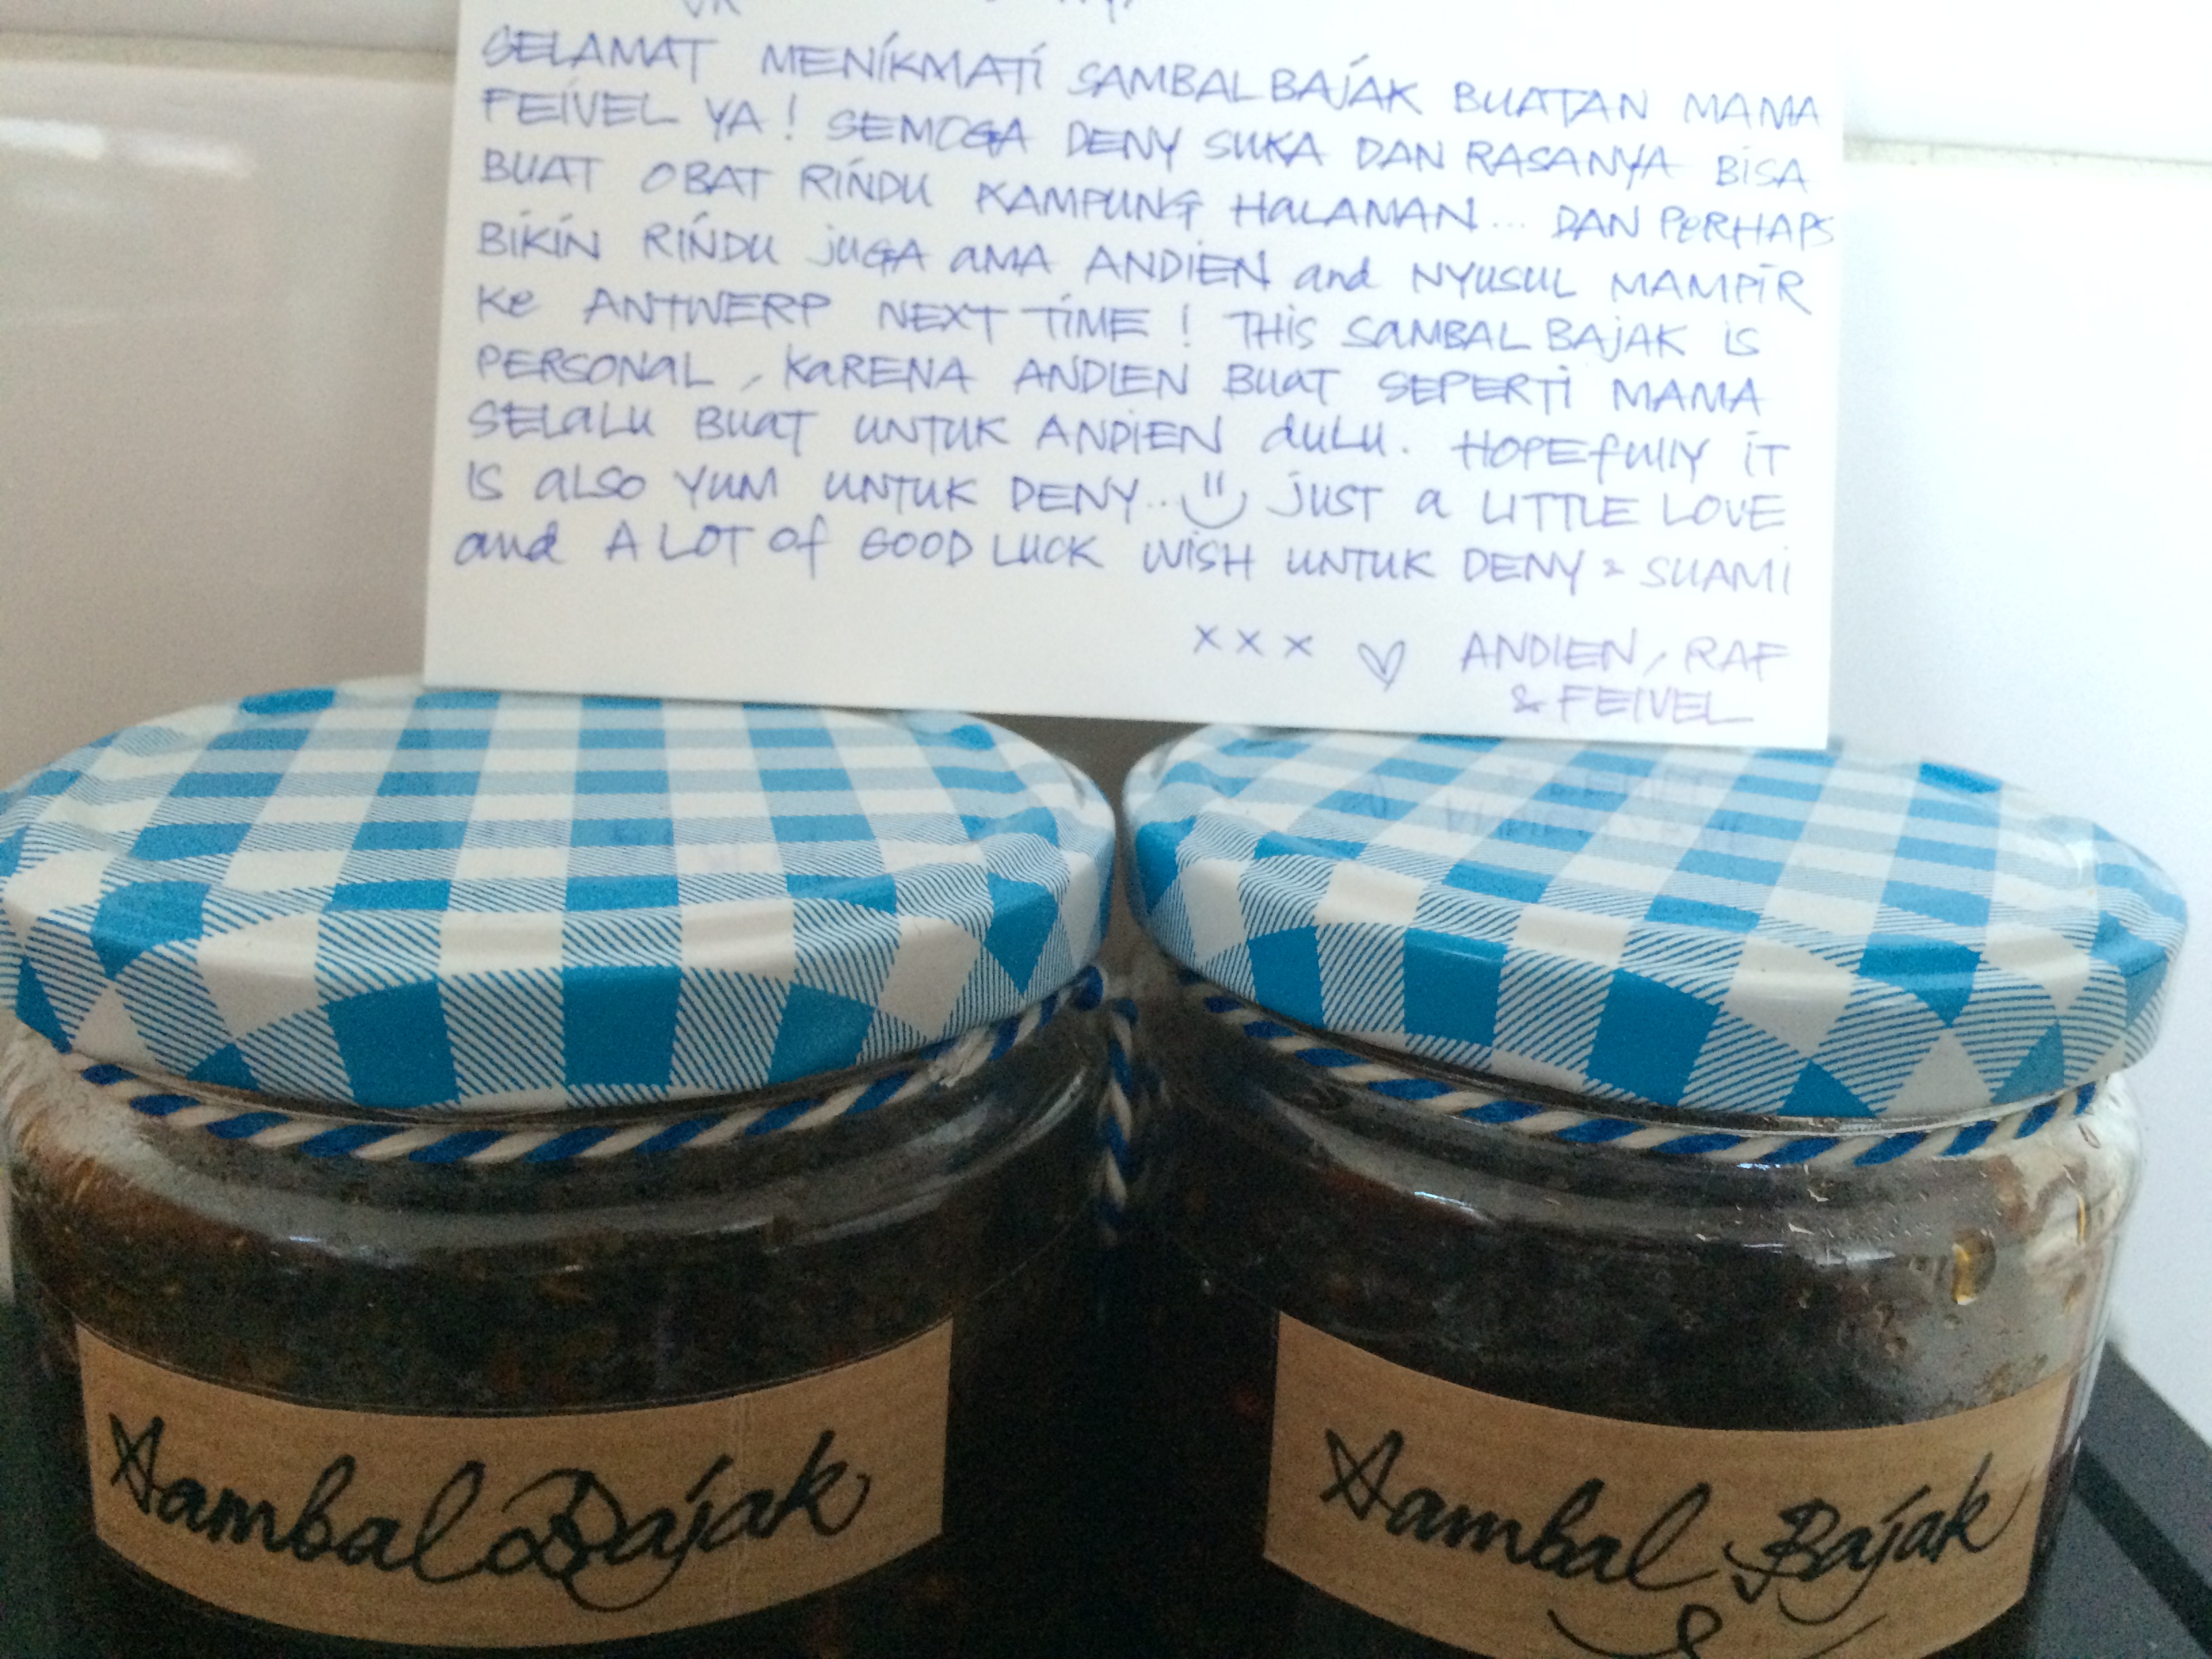 SELAMAT MENIKMATI SAMBAL BAJAK BUATAN MAMA
FEIVEL YA! SEMOGA DENY SUKA DAN RASANYA BISA
BUAT OBAT RINDU KAMPUNG HALAMAN... DAN PERHAPS
BIKIN RINDU JUGA AMA ANDIEN and NYUSUL MAMPIR
Ke ANTWERP NEXT TIME! THIS SAMBAL BAJAK IS
PERSONAL, KARENA ANDIEN BUAT SEPERTI MAMA
SELALU BUAT UNTUK ANDIEN dULU. HOPEfULLY IT
IS ALSO YUM UNTUK DENY.. JUST a LITTLE LOVE
and A LOT Of GOOD LUCK WISH UNTUK DENY & SUAMI
x x x ♡ ANDIEN, RAF
& FEIVEL
Sambal Bajak
Sambal Bajak